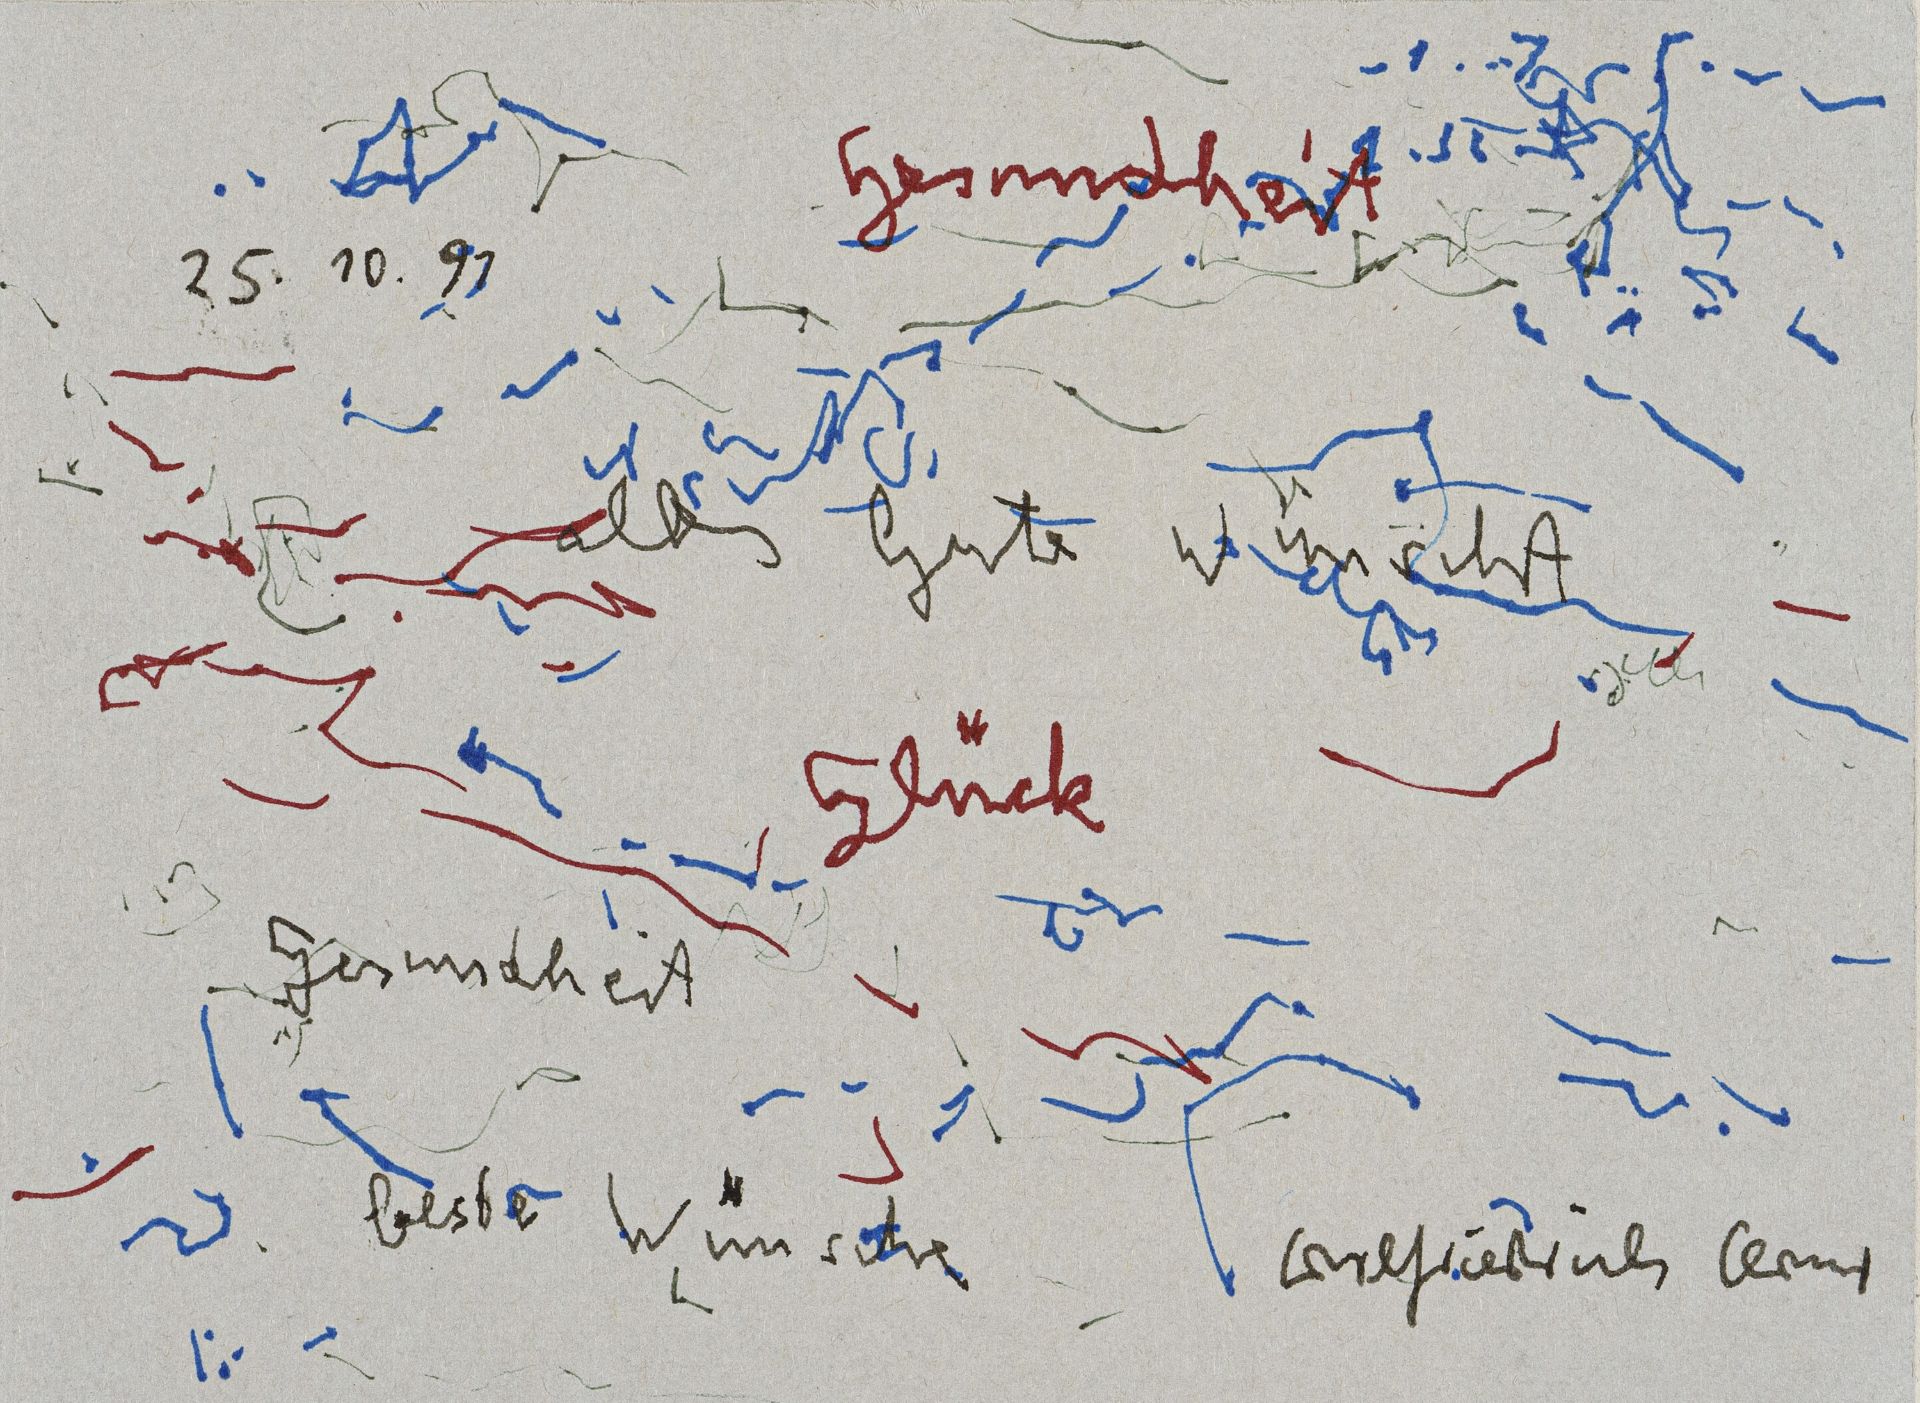 Gesundheit
25. 10. 91
alles Gute wünscht
Glück
Gesundheit
beste Wünsche
Carlfriedrich Claus